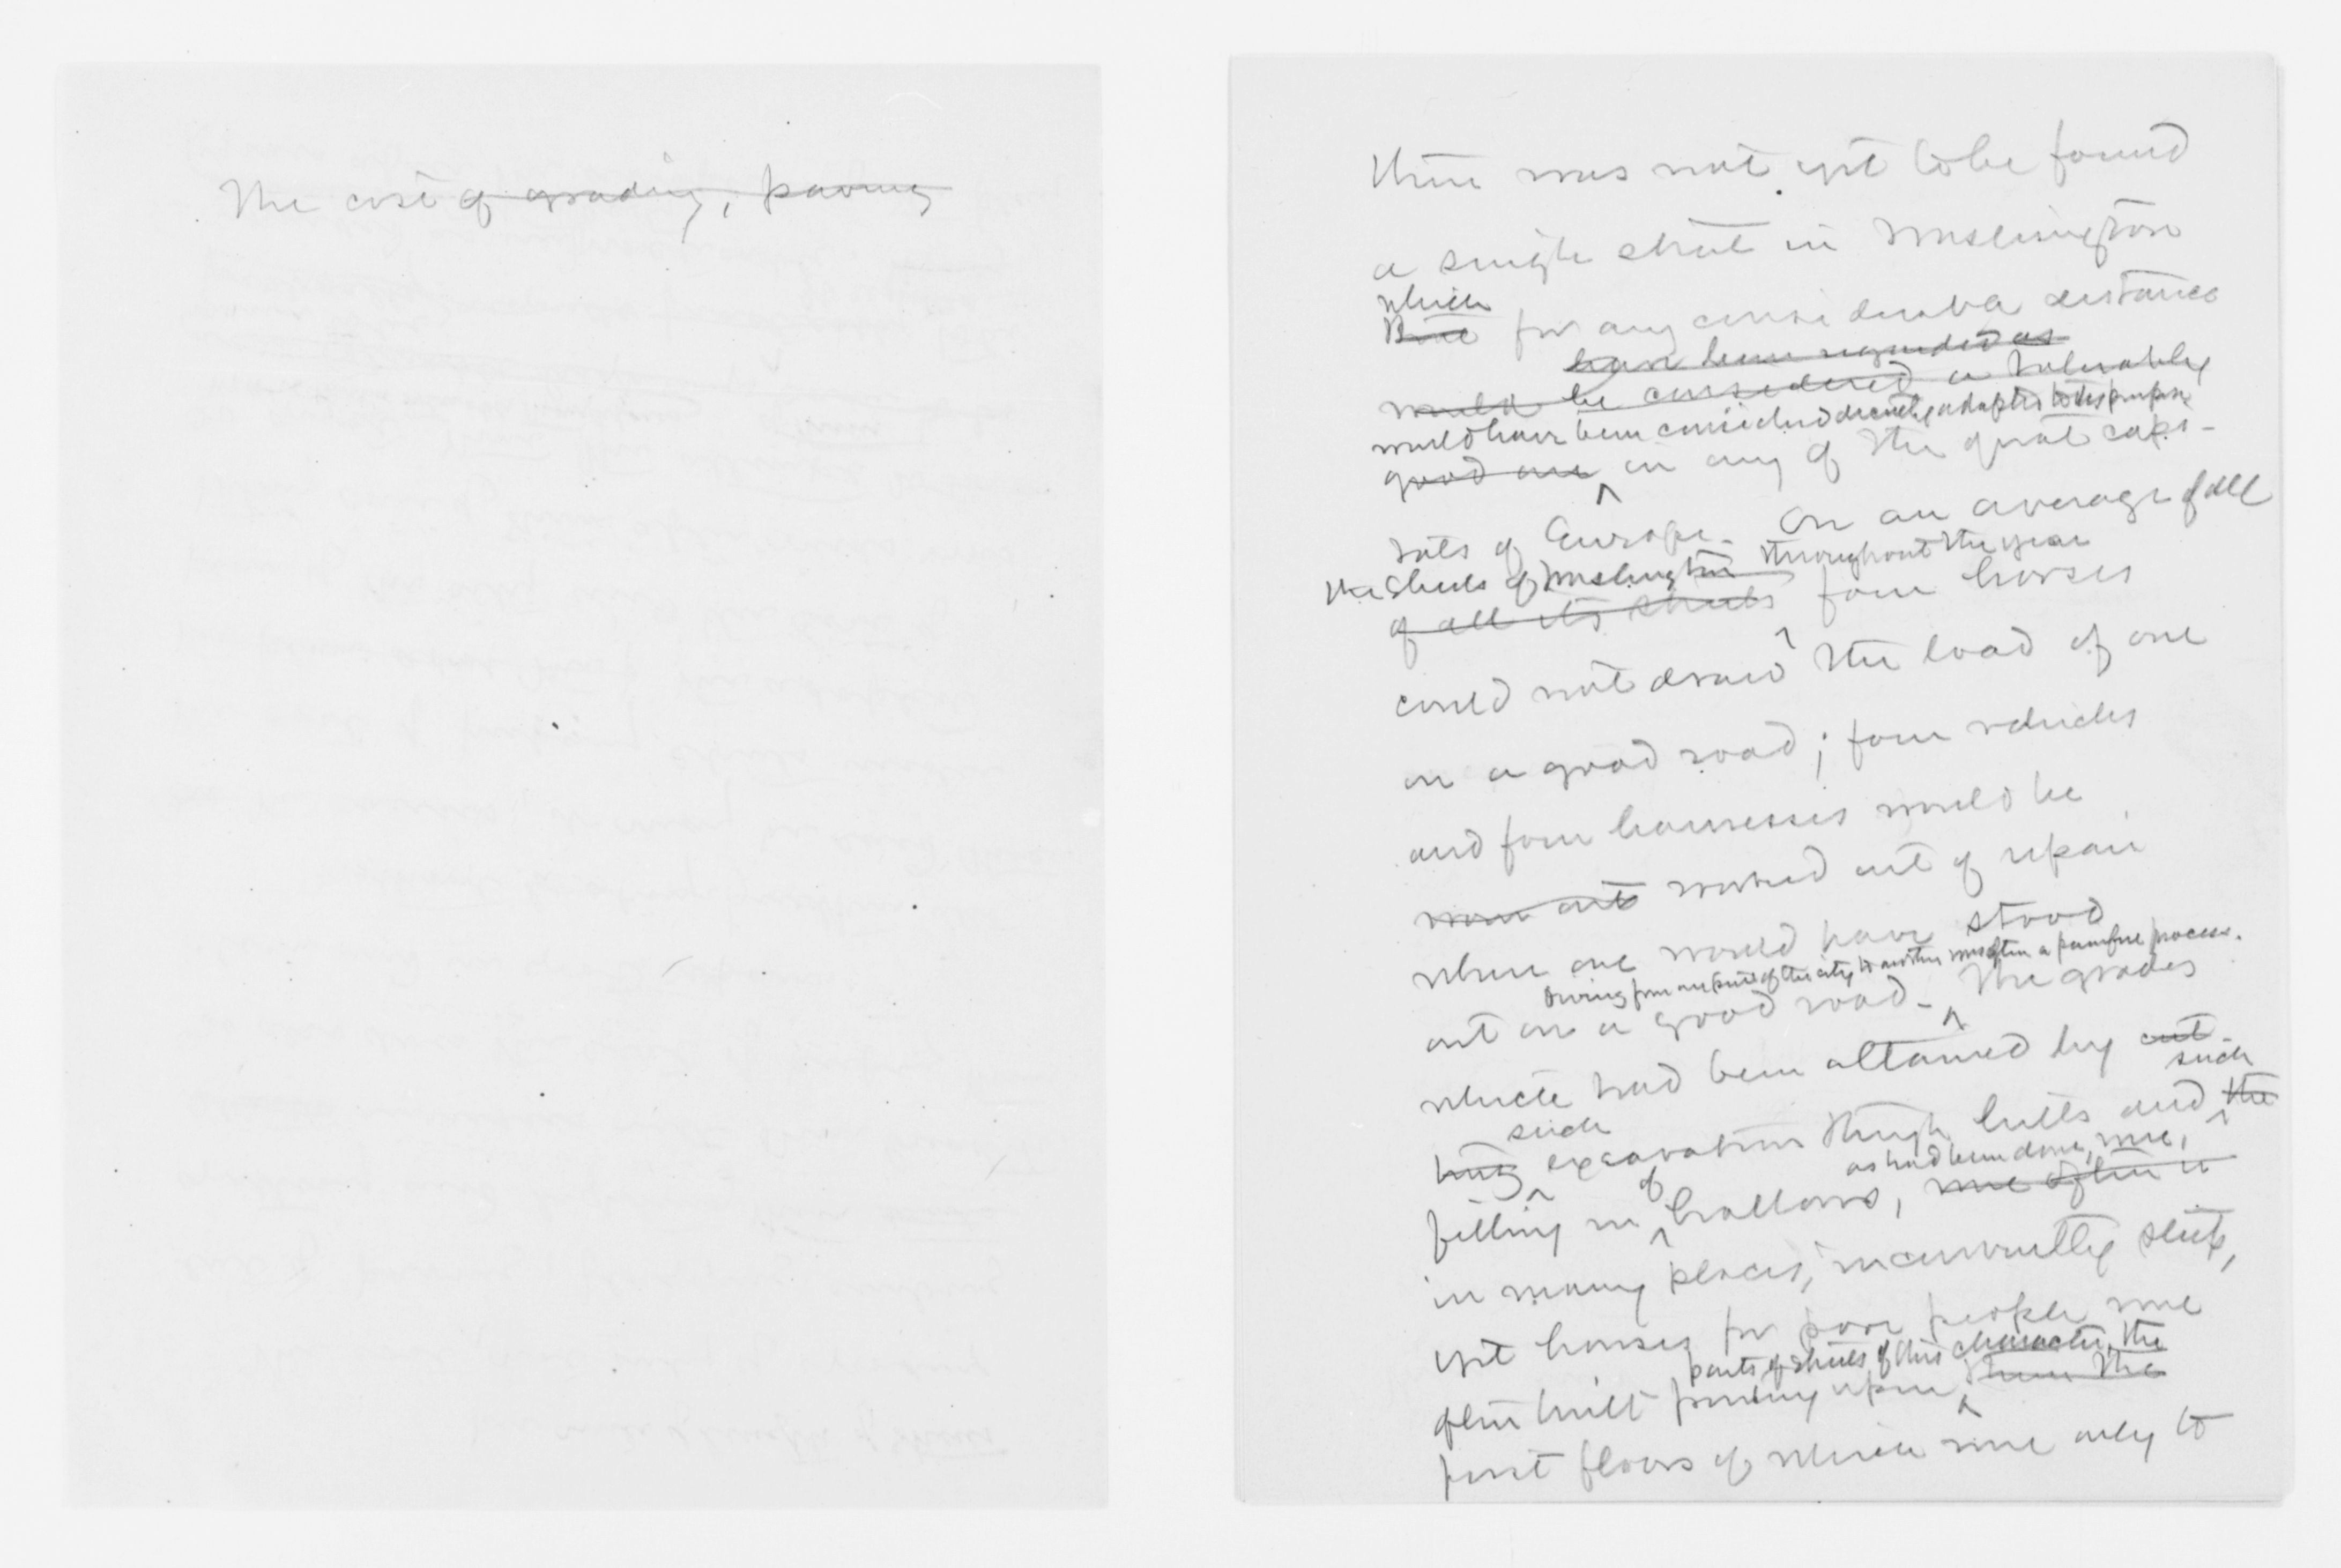 The cost of grading, paving
there was not yet to be found
a single street in Washington
which
But for any considerable distance
have been regarded as
would be considered a tolerably
would have been considered decently adapted to its purpose
good one in any of the great capi-
tals of Europe. On an average of all
the streets of Washington throughout the year
of all its streets four horses
could not draw the load of one
on a good road; four vehicles
and four harnesses would be
worn out worked out of repair
where one would have stood
Driving from one part of the city to another was often a painful process.
out on a good road. The grades
which had been attained by cut-
such
such
ting excavation through hills and the
as had been done, were,
of
filling in hollows, were often in
in many places, inconveniently steep,
yet houses for poor people were
parts of streets of this character, the
often built fronting upon them the
first floors of which were only to